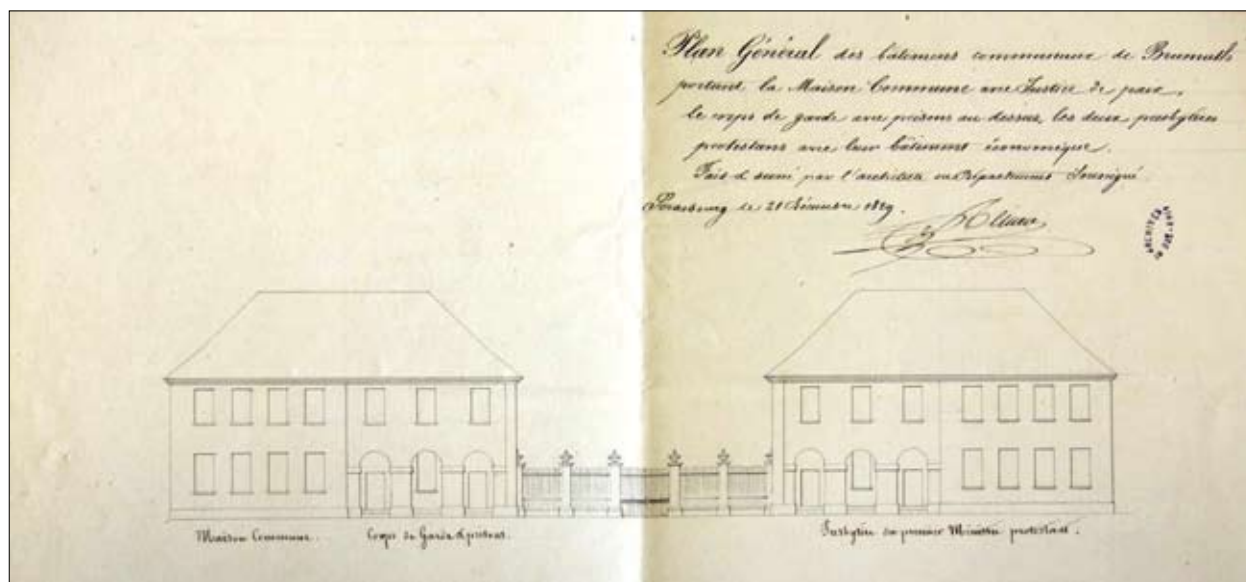 Plan Général des bâtimens communaux de Brumath
portant la Maison Commune avec Justice de paix,
le corps de garde avec prisons au dessus, les deux presbytères
protestans avec leur bâtiment économique.
Fait et par l'architecte du Département Soussigné
Strasbourg le 21 Décembre 1829.
ARCHIVES
DU BAS-RHIN
Maison Commune. Corps de Garde & prisons.
Presbytère du premier Ministre protestant.